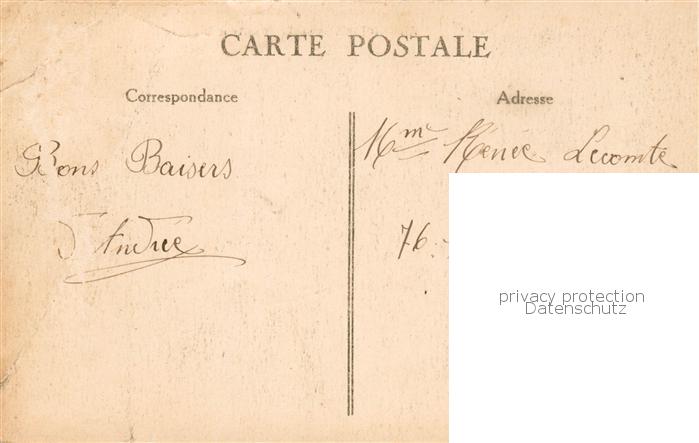 CARTE POSTALE
Correspondance
Adresse
Bons Baisers
d'Andrée
Mme Renée Lecomte
76.
privacy protection
Datenschutz